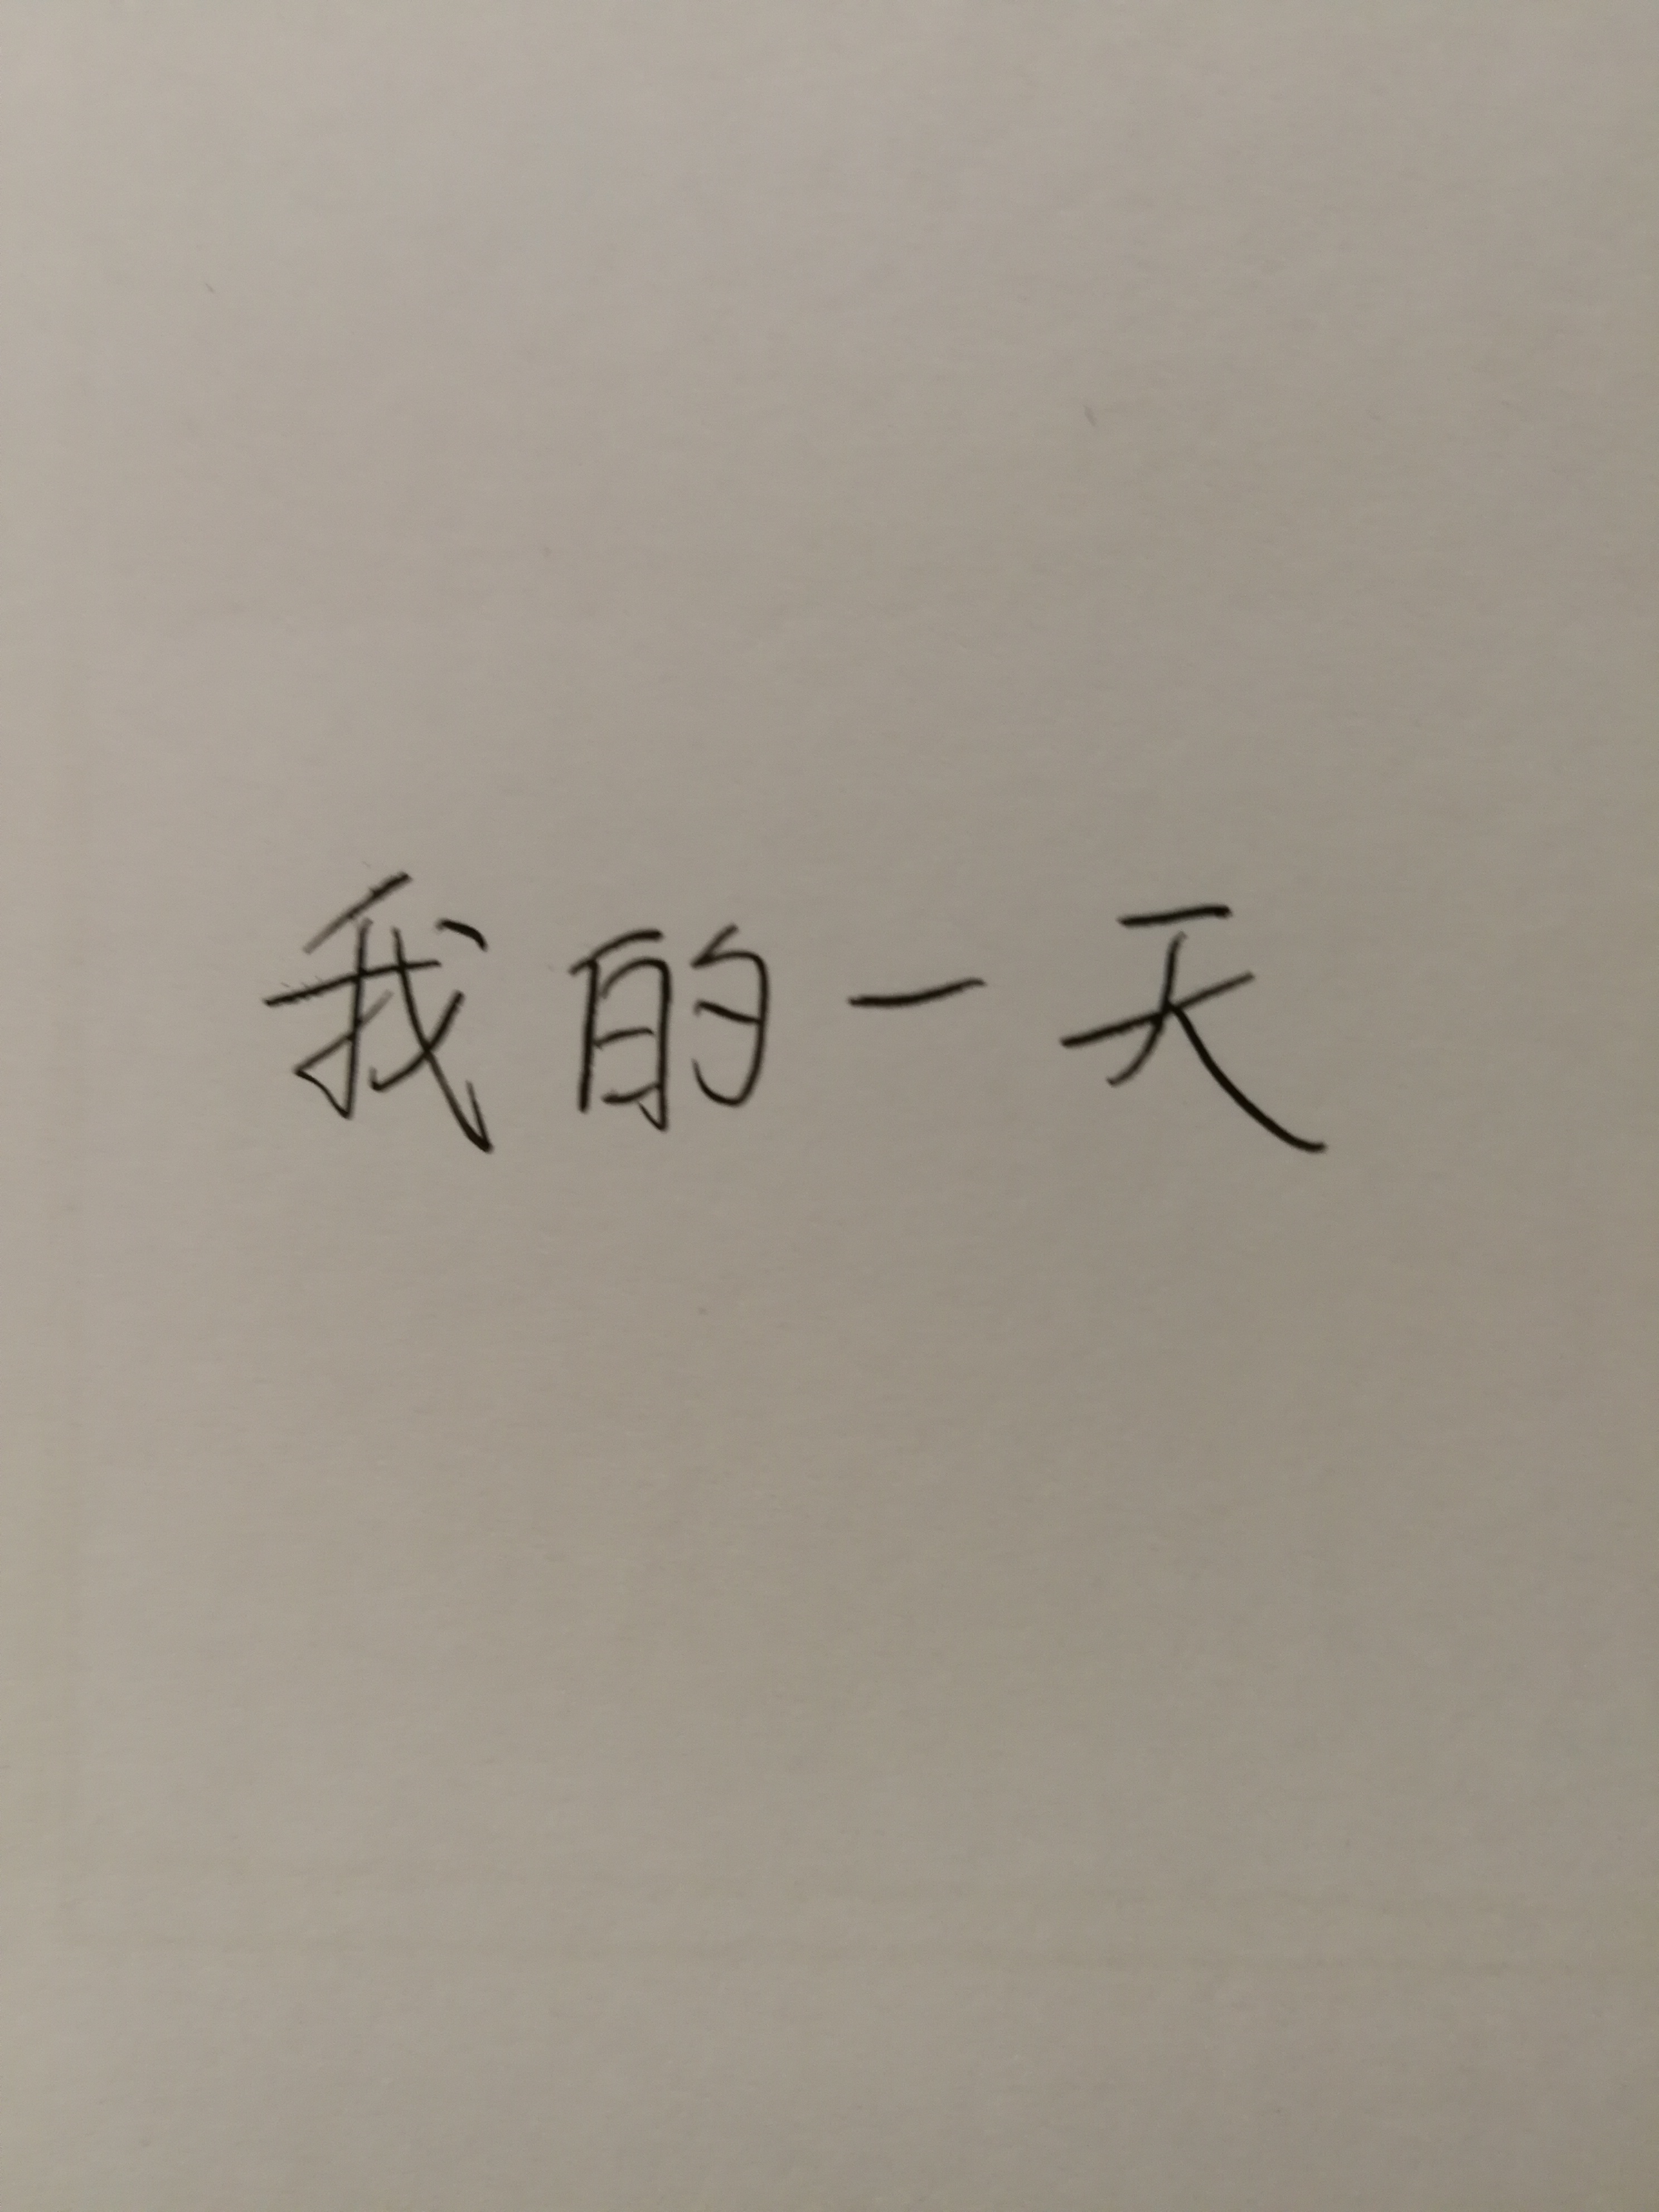 我的一天